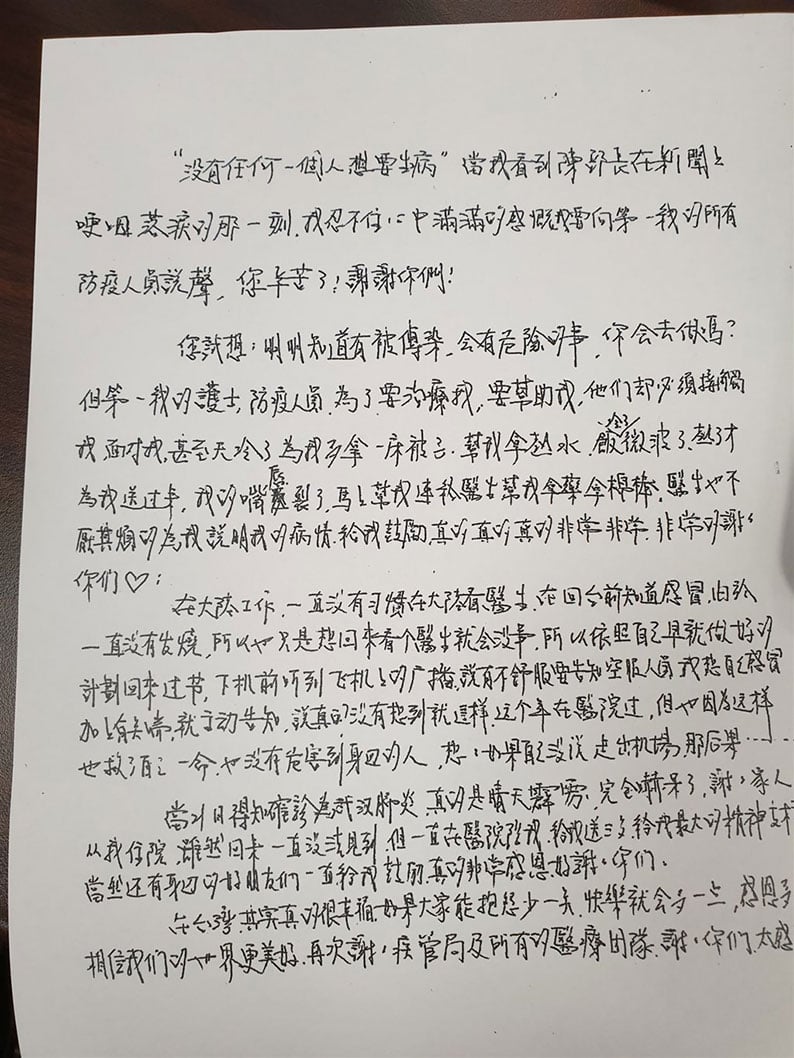 “没有任何一個人想要生病”當我看到陳部長在新聞上
哽咽落淚的那一刻,我忍不住心中滿滿的感慨我要向第一線的所有
防疫人員說聲,您辛苦了!謝謝你們!
您試想:明明知道有被傳染,会有危險的事,你会去做嗎?
但第一線的護士,防疫人員,為了要治療我,要幫助我,他们却必須接觸
我,面对我,甚至天冷了為我多拿一床被子,幫我拿熱水,飯冷了微波了,熱了才
為我送过来,我的嘴唇裂了,馬上幫我連絡醫生幫我拿藥拿棉棒,醫生也不
厭其煩的為我說明我的病情,給我鼓励,真的真的真的非常非常,非常的謝謝
你们♡:
在大陸工作,一直没有习慣在大陸看醫生,在回台前知道感冒,由於
一直没有发燒,所以也只是想回來看个醫生就会没事,所以依照自己早就做好的
計劃回來过节,下机前听到飞机上的广播,說有不舒服要告知空服人員,我想自己感冒
加上有氣喘,就主动告知,說真的没有想到就這样,这个年在醫院过,但也因為这样
也救了自己一命,也没有危害到身边的人,想想如果自己没說走出机場,那后果……
當21日得知確診為武汉肺炎,真的是晴天霹雳,完全嚇呆了,謝謝家人
从我住院,雖然回来一直没法見到,但一直在醫院陪我,給我送三多,給我最大的精神支持
當然还有身边的好朋友们一直給我鼓励,真的非常感恩,好謝謝你们。
在台灣其实真的很幸福,如果大家能抱怨少一点,快樂就会多一点,感恩多
相信我们的世界更美好,再次謝謝疾管局及所有的醫療团隊,謝謝你们,太感